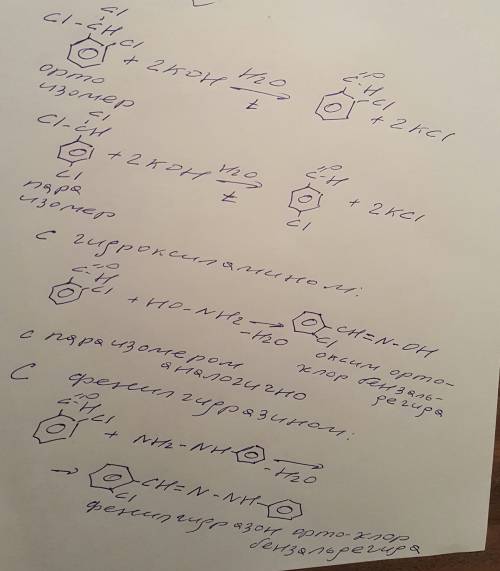 Cl
Cl-CH
Cl
+ 2KOH H2O t → C=O H Cl + 2KCl
орто
изомер
Cl
Cl-CH
+ 2KOH H2O t → C=O H + 2KCl
Cl Cl
пара
изомер
с гидроксиламином:
C=O H Cl + HO-NH2 → -H2O CH=N-OH
Cl
оксим орто-
хлор бензаль-
дегида
с параизомером
аналогично
С фенилгидразином:
C=O H Cl
+ NH2-NH- → -H2O
→ CH=N-NH-
Cl
фенилгидразон орто-хлор
бензальдегида